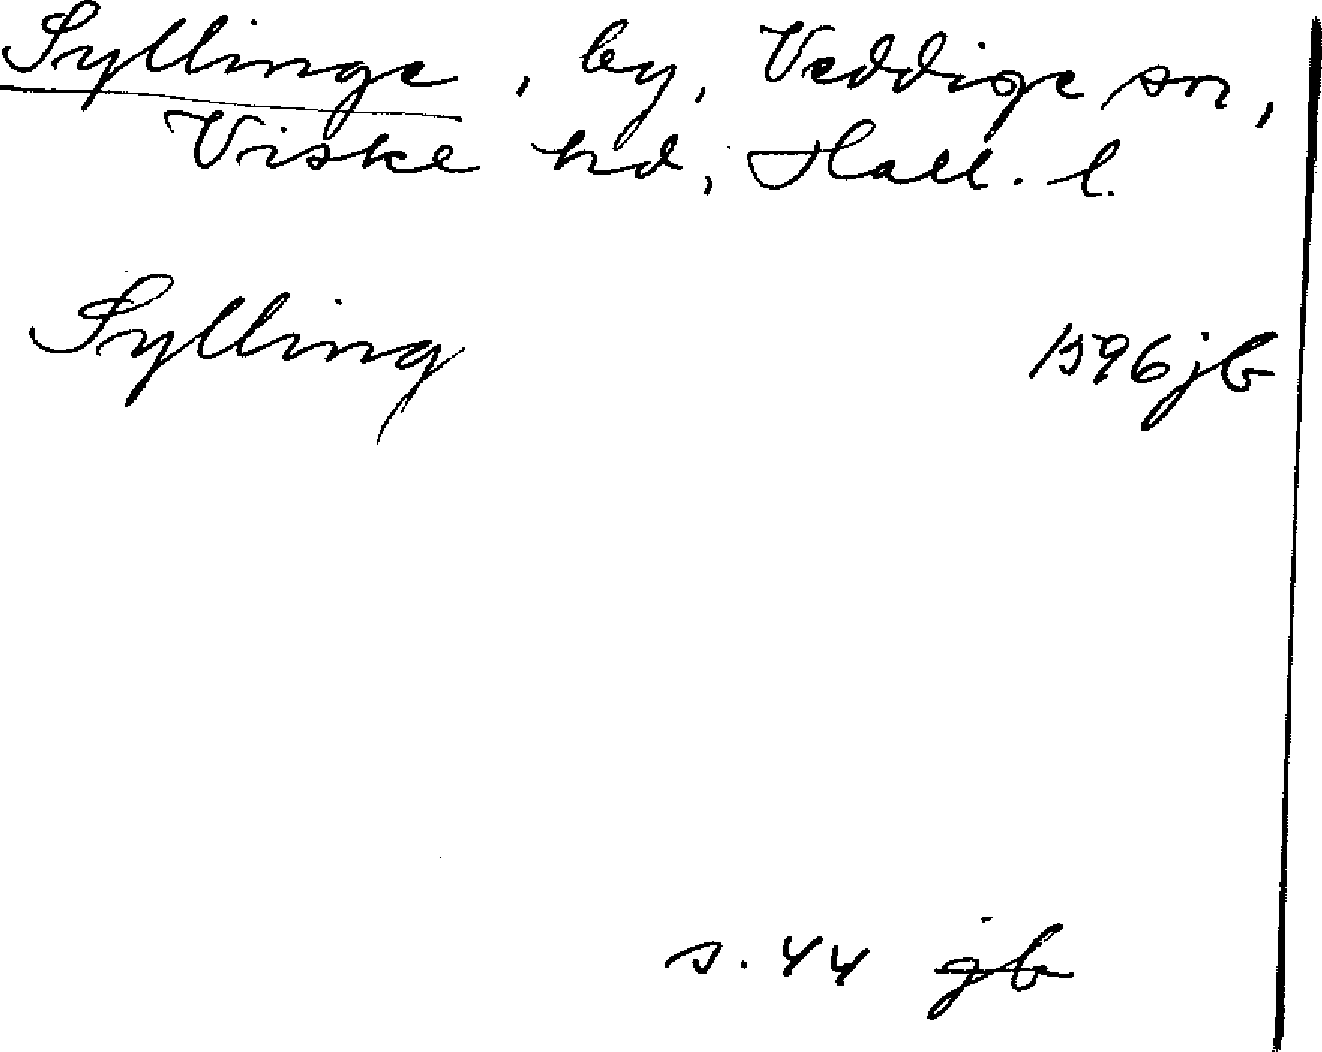 Syllinge, by, Veddige sn,
Viske hd, Hall. l.
Sylling 1596 jb
s. 44 jb